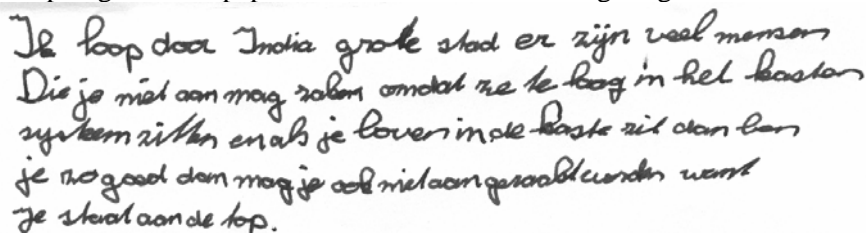 Ik loop door India grote stad er zijn veel mensen
Die je niet aan mag raken omdat ze te laag in het kasten
systeem zitten en als je boven in de kaste zit dan ben
je zo goed dan mag je ook niet aangeraakt worden want
Je staat aan de top.